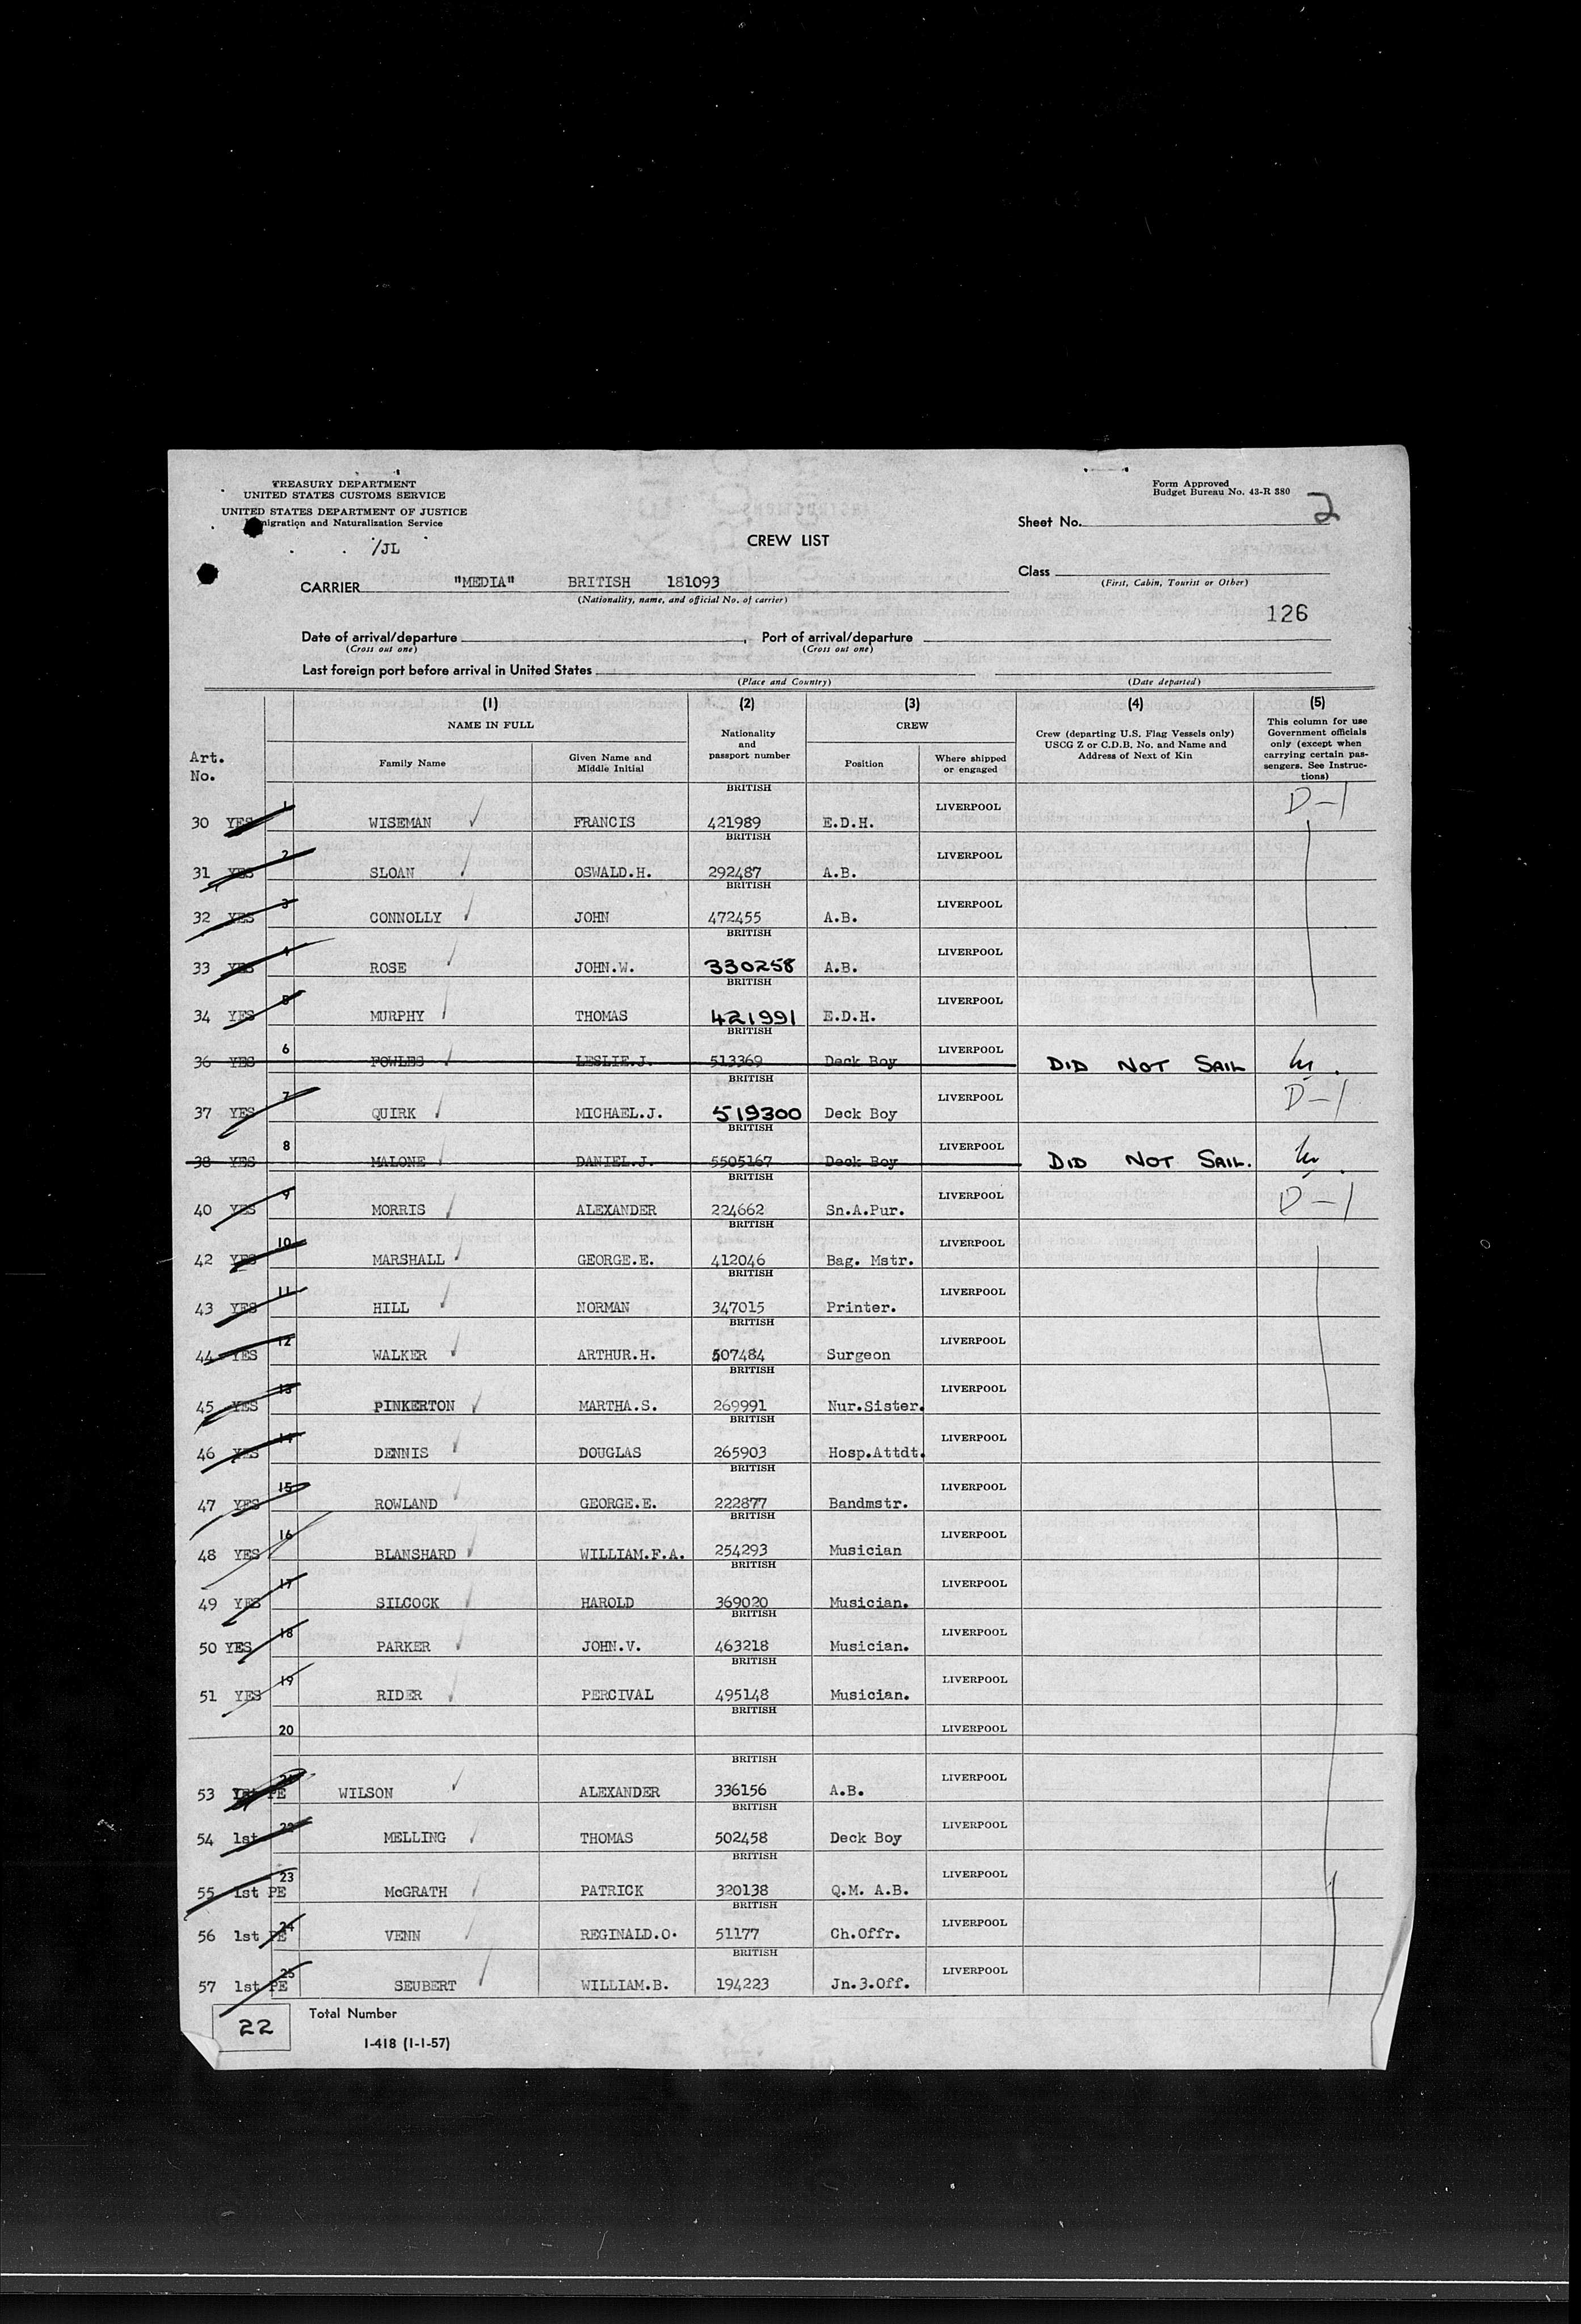 TREASURY DEPARTMENT
UNITED STATES CUSTOMS SERVICE
UNITED STATES DEPARTMENT OF JUSTICE
migration and Naturalization Service
/JL
Form Approved
Budget Bureau No. 43-R 380
Sheet No. 2
CREW LIST
Class
(First, Cabin, Tourist or Other)
CARRIER "MEDIA" BRITISH 181093
(Nationality, name, and official No. of carrier)
126
Date of arrival/departure , Port of arrival/departure
(Cross out one) (Cross out one)
Last foreign port before arrival in United States
(Place and Country) (Date departed)
(1) (2) (3) (4) (5)
NAME IN FULL Nationality and passport number CREW Crew (departing U.S. Flag Vessels only) USCG Z or C.D.B. No. and Name and Address of Next of Kin This column for use Government officials only (except when carrying certain passengers. See Instructions)
Art. No. Family Name Given Name and Middle Initial Position Where shipped or engaged
30 YES 1 WISEMAN FRANCIS BRITISH 421989 E.D.H. LIVERPOOL D-1
31 YES 2 SLOAN OSWALD.H. BRITISH 292487 A.B. LIVERPOOL
32 YES 3 CONNOLLY JOHN BRITISH 472455 A.B. LIVERPOOL
33 YES 4 ROSE JOHN.W. BRITISH 330258 A.B. LIVERPOOL
34 YES 5 MURPHY THOMAS BRITISH 421991 E.D.H. LIVERPOOL
36 YES 6 FOWLES LESLIE.J. BRITISH 513369 Deck Boy LIVERPOOL DID NOT SAIL
37 YES 7 QUIRK MICHAEL.J. BRITISH 519300 Deck Boy LIVERPOOL D-1
38 YES 8 MALONE DANIEL.J. BRITISH 5505167 Deck Boy LIVERPOOL DID NOT SAIL.
40 YES 9 MORRIS ALEXANDER BRITISH 224662 Sn.A.Pur. LIVERPOOL D-1
42 YES 10 MARSHALL GEORGE.E. BRITISH 412046 Bag. Mstr. LIVERPOOL
43 YES 11 HILL NORMAN BRITISH 347015 Printer. LIVERPOOL
44 YES 12 WALKER ARTHUR.H. BRITISH 507484 Surgeon LIVERPOOL
45 YES 13 PINKERTON MARTHA.S. BRITISH 269991 Nur.Sister. LIVERPOOL
46 YES 14 DENNIS DOUGLAS BRITISH 265903 Hosp.Attdt. LIVERPOOL
47 YES 15 ROWLAND GEORGE.E. BRITISH 222877 Bandmstr. LIVERPOOL
48 YES 16 BLANSHARD WILLIAM.F.A. BRITISH 254293 Musician LIVERPOOL
49 YES 17 SILCOCK HAROLD BRITISH 369020 Musician. LIVERPOOL
50 YES 18 PARKER JOHN.V. BRITISH 463218 Musician. LIVERPOOL
51 YES 19 RIDER PERCIVAL BRITISH 495148 Musician. LIVERPOOL
20 BRITISH LIVERPOOL
53 PE 21 WILSON ALEXANDER BRITISH 336156 A.B. LIVERPOOL
54 1st 22 MELLING THOMAS BRITISH 502458 Deck Boy LIVERPOOL
55 1st PE 23 McGRATH PATRICK BRITISH 320138 Q.M. A.B. LIVERPOOL
56 1st PE 24 VENN REGINALD.O. BRITISH 51177 Ch.Offr. LIVERPOOL
57 1st PE 25 SEUBERT WILLIAM.B. BRITISH 194223 Jn.3.Off. LIVERPOOL
22 Total Number
I-418 (1-1-57)